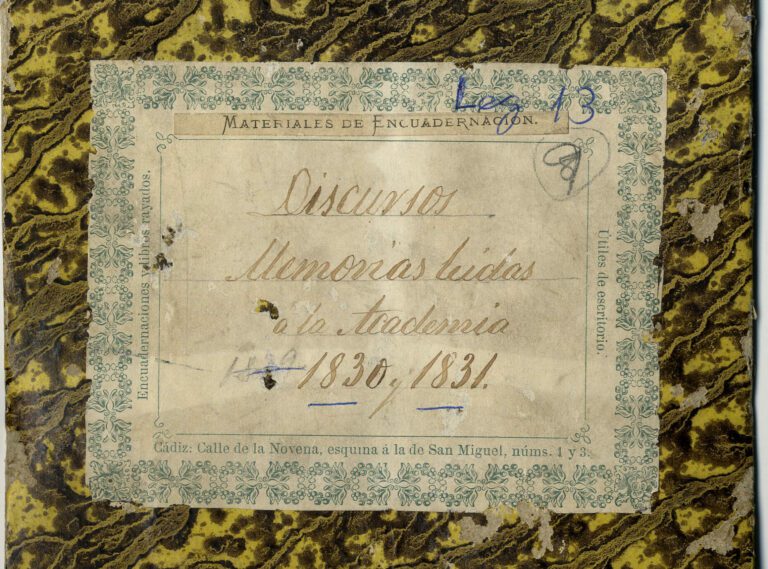 Leg 13
MATERIALES DE ENCUADERNACIÓN.
Encuadernaciones libros rayados.
Útiles de escritorio.
Discursos
Memorias leidas
a la Academia
1830 y 1831.
Cádiz: Calle de la Novena, esquina á la de San Miguel, núms. 1 y 3.